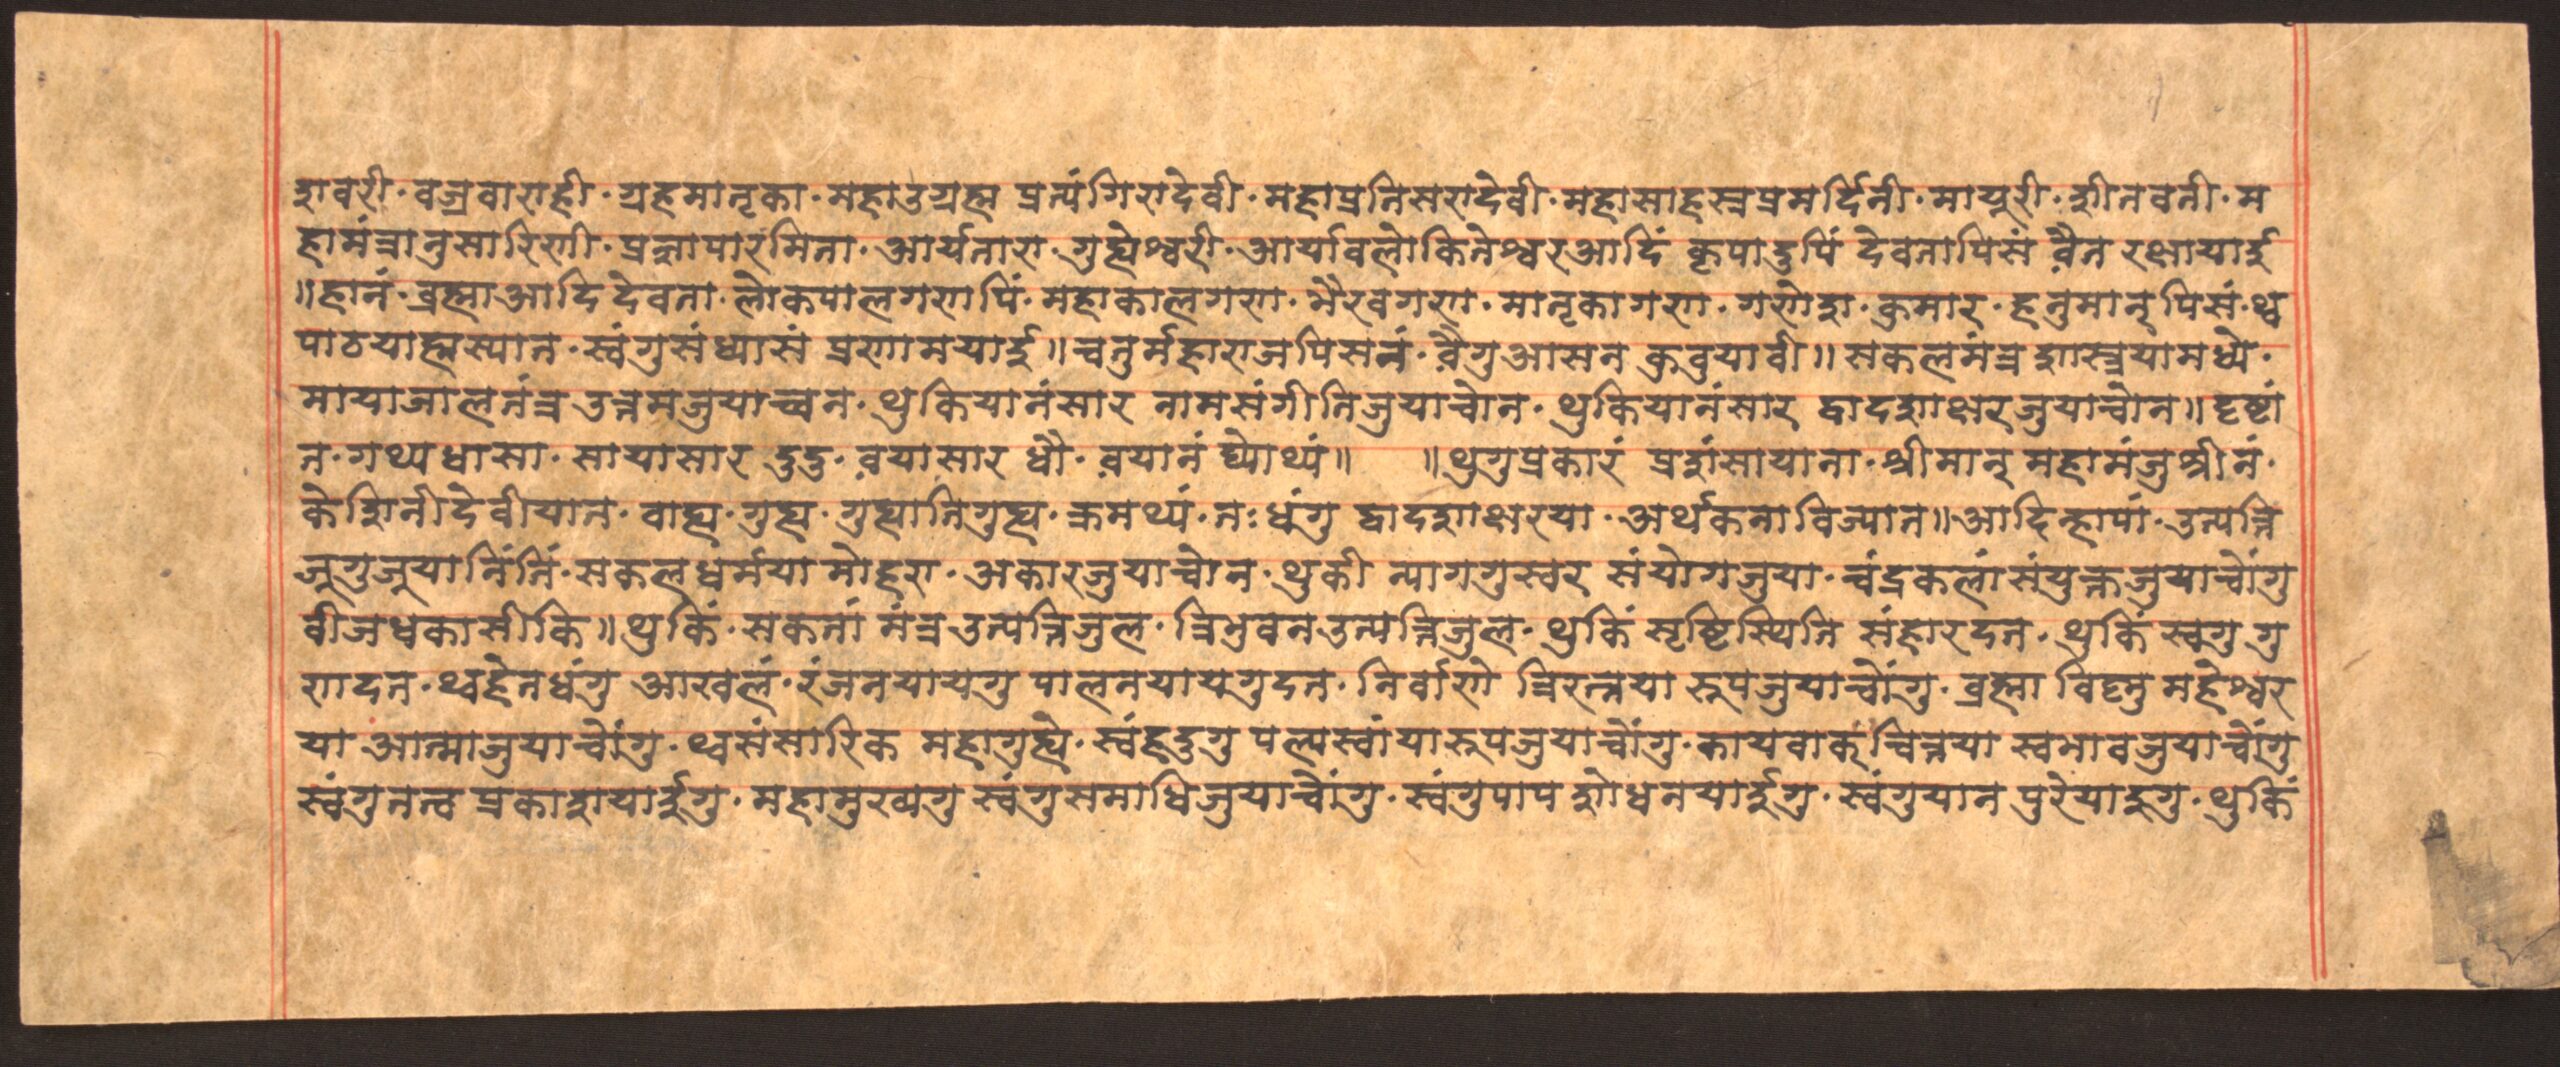 शवरी · वज्रवाराही · ग्रहमातृका · महाउग्रह्म प्रत्यंगिरादेवी · महाप्रतिसरादेवी · महासाहस्त्रप्रमर्दिनी · मायूरी · शीतवती · म
हामंत्रानुसारिणी · प्रज्ञापारमिता · आर्यतारा · गुह्येश्वरी · आर्यावलोकितेश्वरआदिं कृपादुपिं देवतापिसं वैत रक्षायाई
॥हानं · ब्रह्माआदि देवता · लोकपालगणपिं · महाकालगण · भैरवगण · मातृकागण · गणेश · कुमार · हनुमान् पिसं · थ्व
पाठयाह्मस्यात · स्वंगुसंध्यासं प्रणामयाई॥ चतुर्महाराजपिसनं · वैगु आसन कुवुयावी॥ सकलमंत्रशास्त्रयामध्ये ·
मायाजालतंत्र उत्तमजुयाच्वन · थुकियानंसार नामसंगीतिजुयाचोन · थुकियानंसार द्वादशाक्षरजुयाचोन॥ दृष्टां
त · गथ्यधासा · सायासार दुदु · वयासार धौ · वयानं घ्योथ्यं॥ ॥थुगुप्रकारं प्रशंसायाना · श्रीमान् महामंजुश्रीनं ·
केशिनीदेवीयात · वाह्य · गुह्य · गुह्यातिगुह्य · क्रमथ्यं · तः धंगु द्वादशाक्षरया · अर्थकनाविज्यात॥ आदिन्हापां · उत्पत्ति
जूगुजूयानिंतिं · सकलधर्मया मोहरा · अकारजुयाचोन · थुकी न्यागगुस्वर संयोगजुया · चंद्रकलां संयुक्तजुयाचोंगु
वीजधकासीकि॥ थुकिं · सकतां मंत्र उत्पत्तिजुल · त्रिभुवनउत्पत्तिजुल · थुकिं सृष्टिस्थिति संहारदत · थुकिं स्वगु गु
णदत · थ्वहेतधंगु आखलं · रंजनयायगु पालनयायगुदत · निर्वाणे त्रिरत्नया रूपजुयाचोंगु · ब्रह्मा विष्नु महेश्वर
या आत्माजुयाचोंगु · थ्वसंसारिक महागुह्ये · स्वंहदुगु पल्यस्वांयारूपजुयाचोंगु · कायवाक्चित्तया स्वभावजुयाचोंगु
स्वंगुतत्व प्रकाशयाईगु · महामुख्यगु स्वंगुसमाधिजुयाचोंगु · स्वंगुपाप शोधनयाईगु · स्वंगुयान पुरेयाइगु · थुकिं